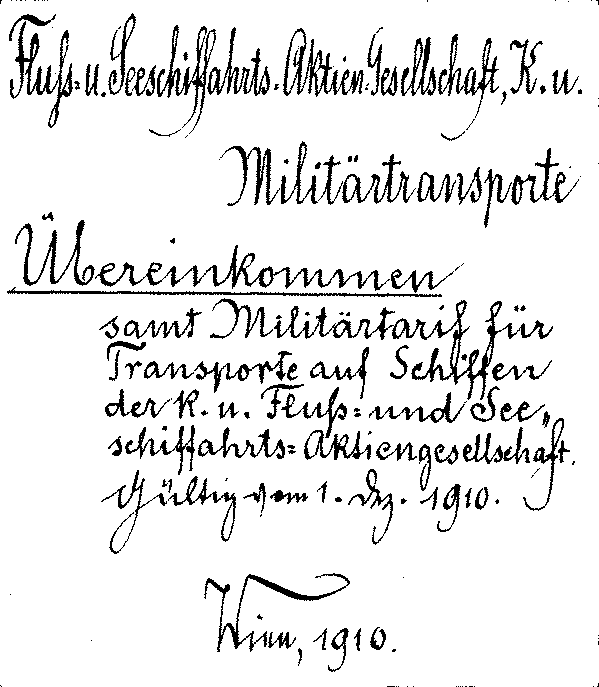 Fluss- u. Seeschiffahrts-Aktien-Gesellschaft, K. u.
Militärtransporte
Übereinkommen
samt Militärtarif für
Transporte auf Schiffen
der k. u. Fluß- und See„
schiffahrts-Aktiengesellschaft.
Gültig vom 1. Dez. 1910.
Wien, 1910.